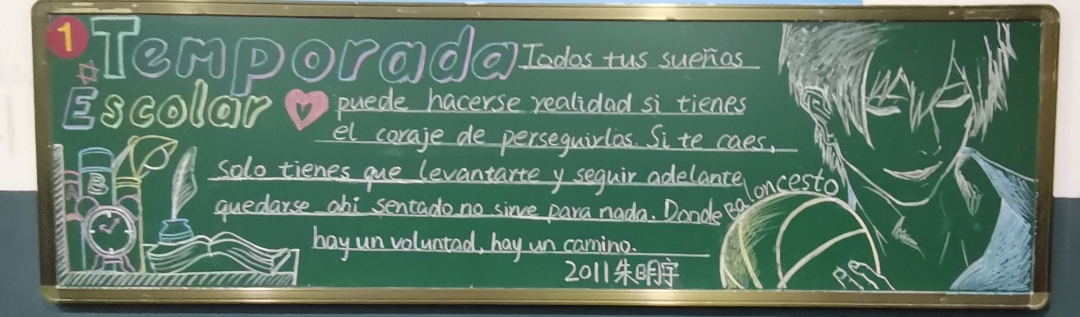 1
Temporada
Escolar
Todos tus sueños
puede hacerse realidad si tienes
el coraje de perseguirlos. Si te caes,
Solo tienes que levantarte y seguir adelante,
quedarse ahi sentado no sirve para nada. Donde
hay un voluntad, hay un camino.
Baloncesto
2011朱明宇